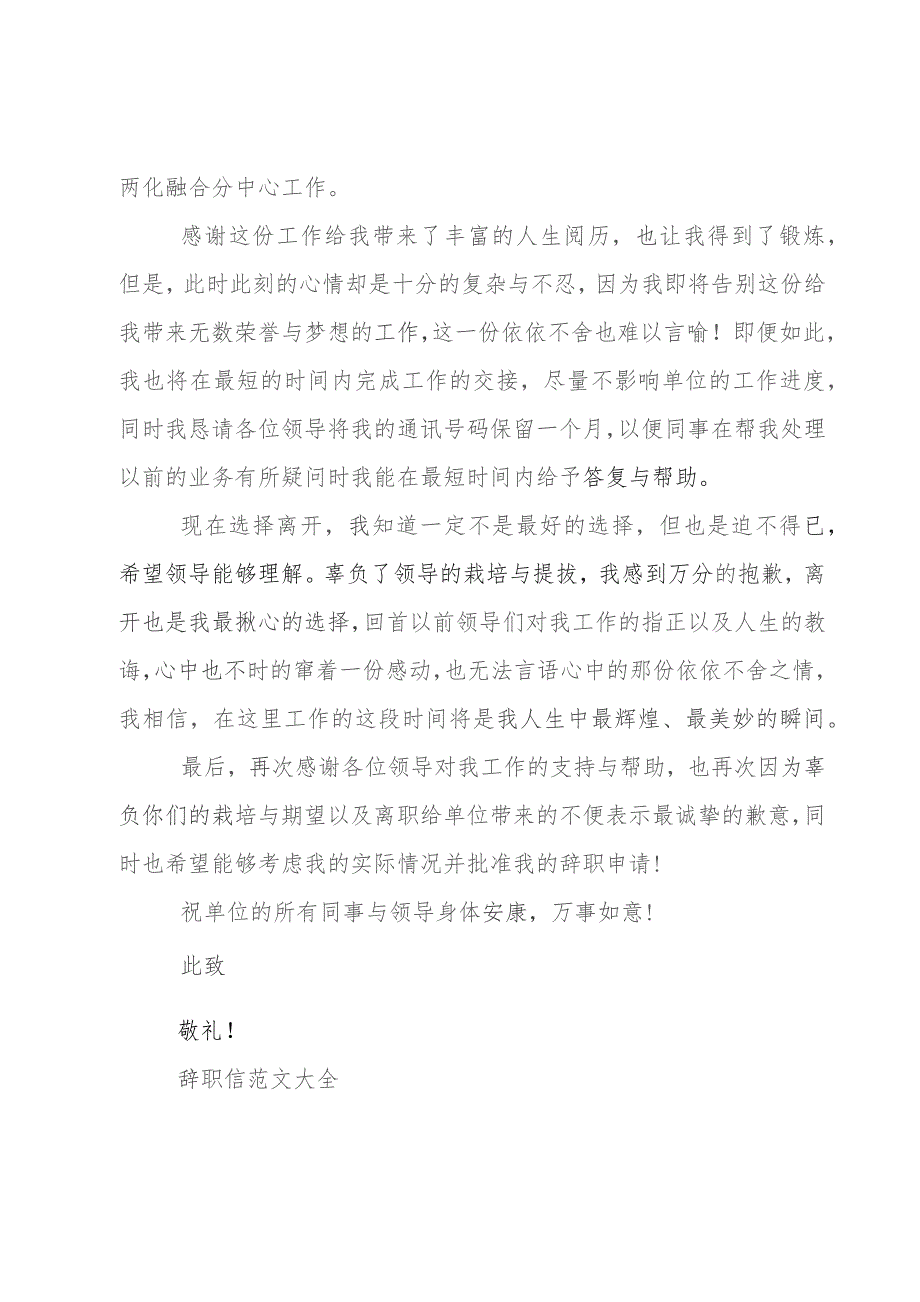 两化融合分中心工作。
感谢这份工作给我带来了丰富的人生阅历，也让我得到了锻炼，
但是，此时此刻的心情却是十分的复杂与不忍，因为我即将告别这份给
我带来无数荣誉与梦想的工作，这一份依依不舍也难以言喻！即便如此，
我也将在最短的时间内完成工作的交接，尽量不影响单位的工作进度，
同时我恳请各位领导将我的通讯号码保留一个月，以便同事在帮我处理
以前的业务有所疑问时我能在最短时间内给予答复与帮助。
现在选择离开，我知道一定不是最好的选择，但也是迫不得已，
希望领导能够理解。辜负了领导的栽培与提拔，我感到万分的抱歉，离
开也是我最揪心的选择，回首以前领导们对我工作的指正以及人生的教
诲，心中也不时的窜着一份感动，也无法言语心中的那份依依不舍之情，
我相信，在这里工作的这段时间将是我人生中最辉煌、最美妙的瞬问。
最后，再次感谢各位领导对我工作的支持与帮助，也再次因为辜
负你们的栽培与期望以及离职给单位带来的不便表示最诚挚的歉意，同
时也希望能够考虑我的实际情况并批准我的辞职申请！
祝单位的所有同事与领导身体安康，万事如意！
此致
敬礼！
辞职信范文大全